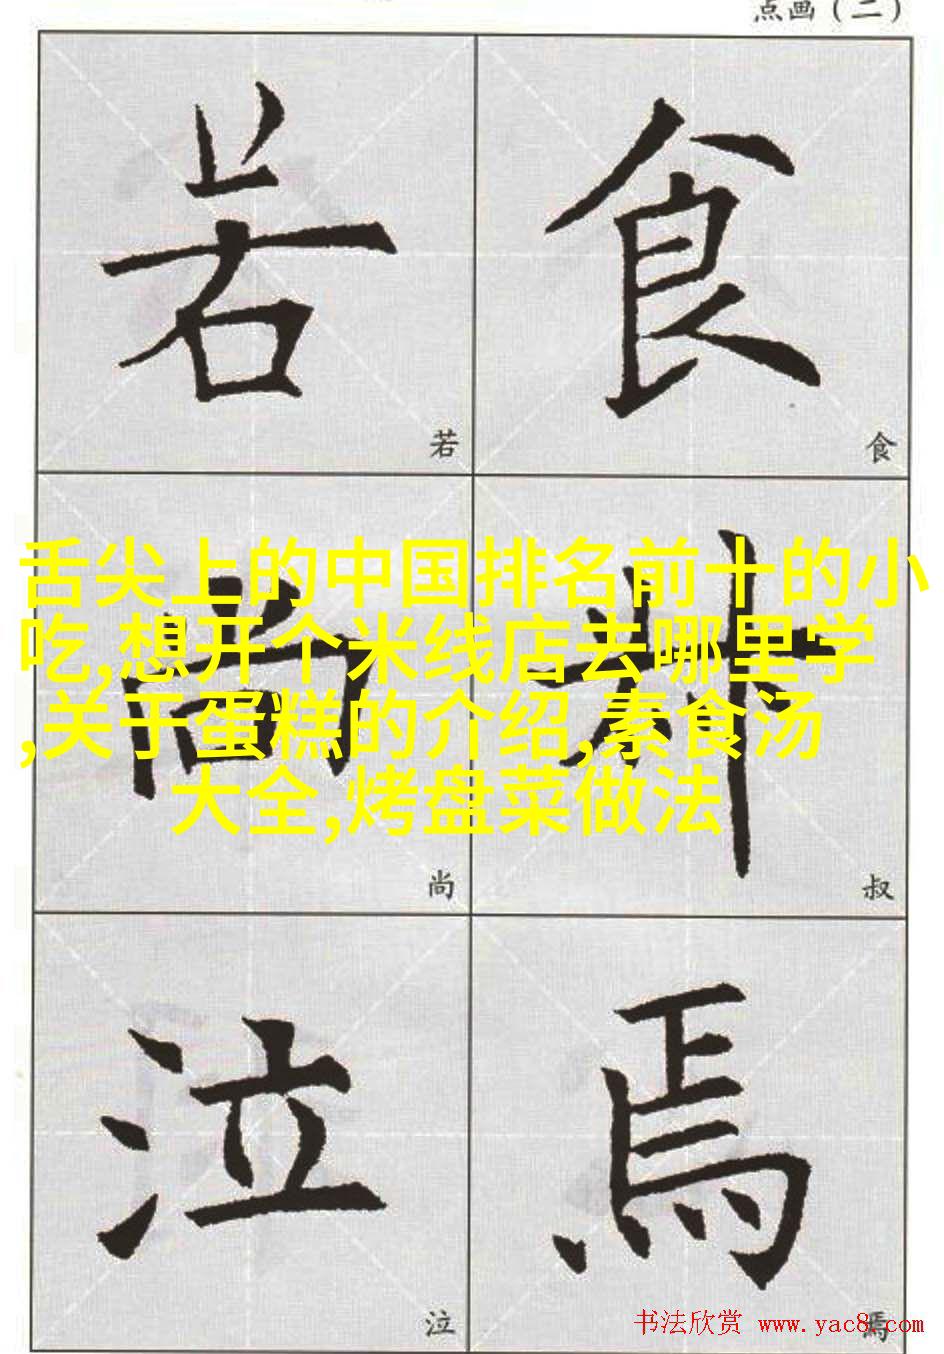 点画（二）
若 食
若 食
舌尖上的中国排名前十的小
吃,想开个米线店去哪里学
,关于蛋糕的介绍,素食汤
大全,烤盘菜做法
尚 叔
尚 叔
泣 焉
泣 焉
书法欣赏 www.yac8.com